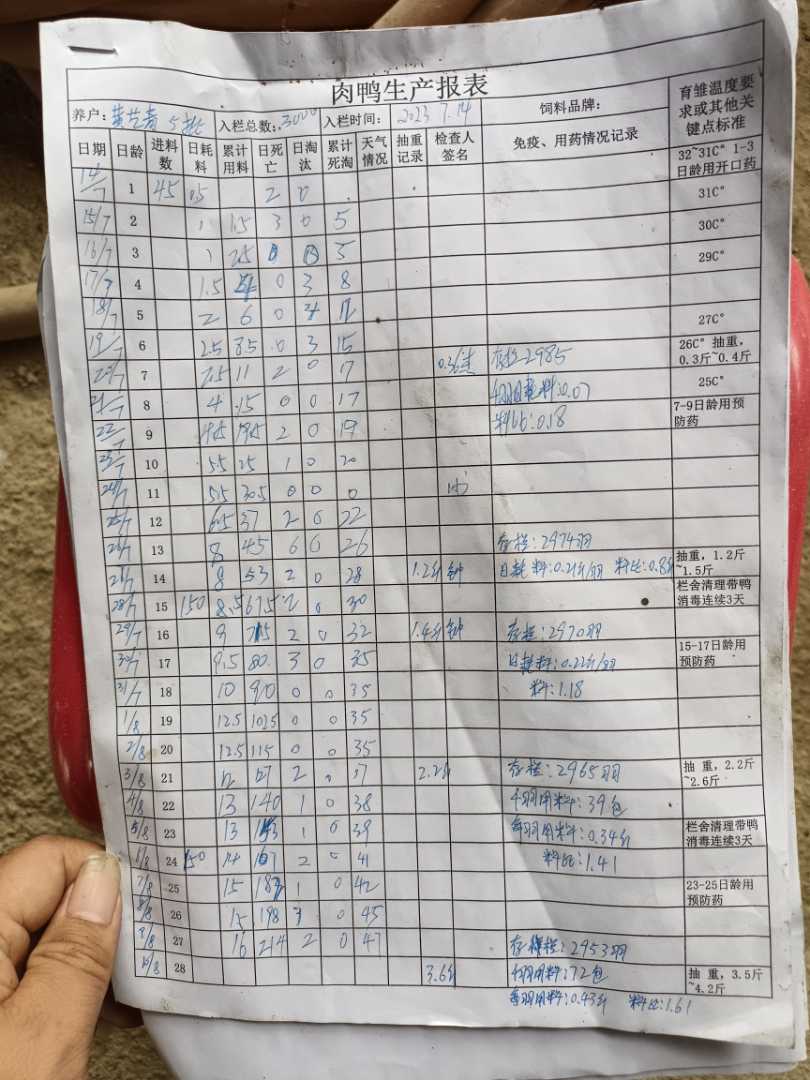 肉鸭生产报表
养户: 5批 入栏总数: 3000 入栏时间: 2023 7.14 饲料品牌: 育雏温度要求或其他关键点标准
日期 日龄 进料数 日耗料 累计用料 日死亡 日淘汰 累计死淘 天气情况 抽重记录 检查人签名 免疫、用药情况记录
32~31C° 1-3日龄用开口药
14/7 1 45 0.5 2 0
31C°
15/7 2 1 1.5 3 0 5
30C°
16/7 3 1 2.5 0 0 5
29C°
17/7 4 1.5 4 0 3 8
18/7 5 2 6 0 12
27C°
19/7 6 2.5 8.5 0 3 15
26C° 抽重,0.3斤~0.4斤
20/7 7 2.5 11 2 0 17 存栏2985
25C°
21/7 8 4 15 0 0 17 料:0.07
7-9日龄用预防药
22/7 9 4.5 19.5 2 0 19 料比:0.18
23/7 10 5.5 25 1 0 20
24/7 11 5.5 30.5 0 0 0
25/7 12 6.5 37 2 0 22
26/7 13 8 45 6 0 26 存栏:2974羽
27/7 14 8 53 2 0 28 1.2斤 日耗料:0.21斤/羽 料比:0.8
抽重,1.2斤~1.5斤
28/7 15 150 8.5 2 0 30
栏舍清理带鸭消毒连续3天
29/7 16 9 2 0 32 1.4斤 存栏:2970羽
30/7 17 9.5 80 3 0 35 日耗料:0.22斤/羽
15-17日龄用预防药
31/7 18 10 90 0 0 35 料:1.18
1/8 19 12.5 102.5 0 0 35
2/8 20 12.5 115 0 0 35
3/8 21 12 127 2 0 37 2.2斤 存栏:2965羽
抽重,2.2斤~2.6斤
4/8 22 13 140 1 0 38 千羽用料:39包
5/8 23 13 153 1 0 39 每羽用料:0.34斤
栏舍清理带鸭消毒连续3天
24 150 14 167 2 0 41 料比:1.41
7/8 25 15 1 0 42
23-25日龄用预防药
8/8 26 15 198 3 0 45
9/8 27 16 214 2 0 47 存栏:2953羽
10/8 28 3.6斤 千羽用料:72包
抽重,3.5斤~4.2斤
每羽用料:0.43斤 料比:1.61